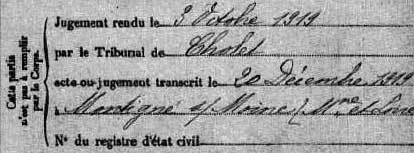 Cette partie
n'est pas à remplir
par le Corps.
Jugement rendu le 3 Octobre 1919
par le Tribunal de Cholet
acte ou jugement transcrit le 20 Décembre 1919
à Montigné s/ Moine (Mne et Loire
N° du registre d'état civil